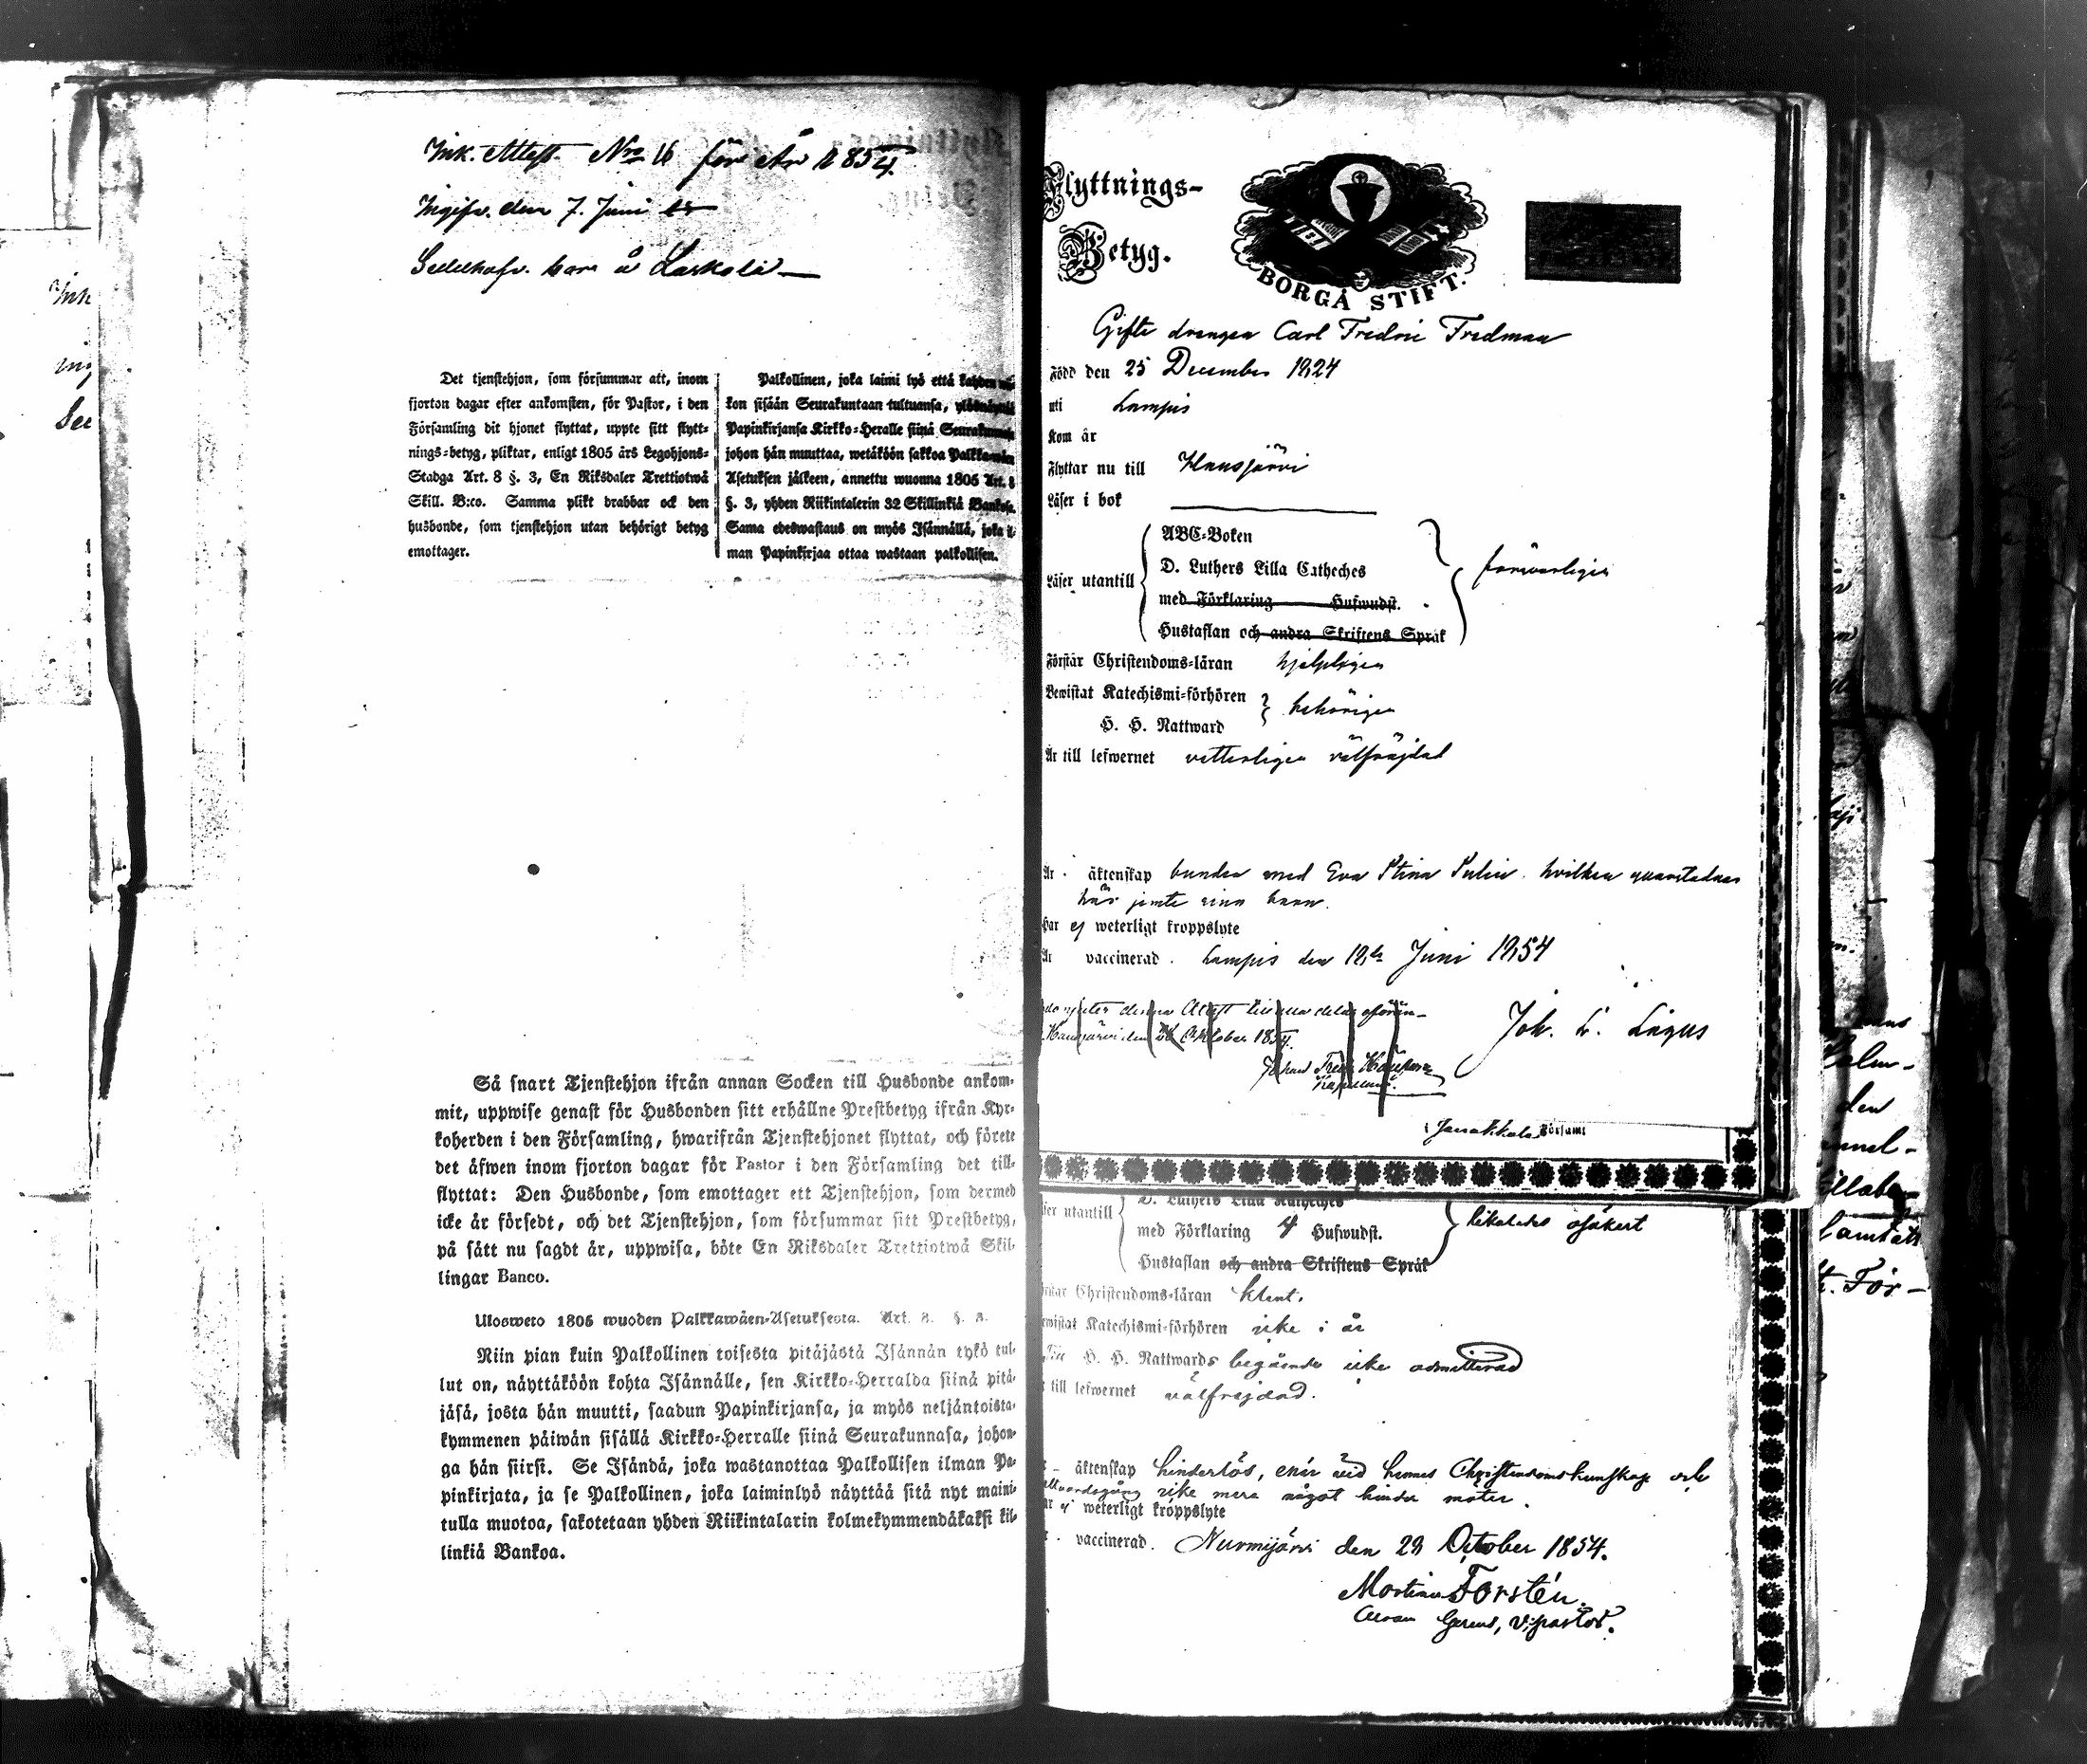 Ink. Attest. Nro 16 för År 1854.
Ingifv. den 7. Juni
Sedelhafv. bara å Laskola
Det tjenstehjon, som försummar att, inom
fjorton dagar efter ankomsten, för Pastor, i den
Församling dit hjonet flyttat, uppte sitt flytt-
nings-betyg, pliktar, enligt 1805 års Legohjons-
Stadga Art. 8 §. 3, En Riksdaler Trettiotwå
Skill. B:co. Samma plikt drabbar ock den
husbonde, som tjenstehjon utan behörigt betyg
emottager.
Palkollinen, joka laimi lyö että kahden wii-
kon sisään Seurakuntaan tultuansa, ylösnäyttä
Papinkirjansa Kirkko-Heralle siinä Seurakunnasa
johon hän muuttaa, wetäköön sakkoa Palkkawäen
Asetuksen jälkeen, annettu wuonna 1805 Art. 8
§. 3, yhden Riikintalerin 32 Skillinkiä Bankosa.
Sama edeswastaus on myös Isännällä, joka il-
man Papinkirjaa ottaa wastaan palkollisen.
Så snart Tjenstehjon ifrån annan Socken till Husbonde ankom-
mit, uppwise genast för Husbonden sitt erhållne Prestbetyg ifrån Kyr-
koherden i den Församling, hwarifrån Tjenstehjonet flyttat, och förete
det äfwen inom fjorton dagar för Pastor i den Församling det till-
flyttat: Den Husbonde, som emottager ett Tjenstehjon, som dermed
icke är försedt, och det Tjenstehjon, som försummar sitt Prestbetyg,
på sätt nu sagdt är, uppwisa, böte En Riksdaler Trettiotwå Skil-
lingar Banco.
Ulosweto 1805 wuoden Palkkawäen-Asetuksesta. Art. 8. §. 3.
Niin pian kuin Palkollinen toisesta pitäjästä Isännän tykö tul-
lut on, näyttäköön kohta Isännälle, sen Kirkko-Herralda siinä pitä-
jäsä, josta hän muutti, saadun Papinkirjansa, ja myös neljäntoista-
kymmenen päiwän sisällä Kirkko-Herralle siinä Seurakunnasa, johon-
ga hän siirsi. Se Isändä, joka wastanottaa Palkollisen ilman Pa-
pinkirjata, ja se Palkollinen, joka laiminlyö näyttää sitä nyt maini-
tulla muotoa, sakotetaan yhden Riikintalarin kolmekymmendäkaksi kil-
linkiä Bankoa.
Flyttnings-
Betyg.
BORGÅ STIFT.
Gifte drengen Carl Fredric Fredman
Född den 25 December 1824
uti Lampis
Kom år
Flyttar nu till Hausjärvi
Läser i bok
ABC-Boken
D. Luthers Lilla Catheches
Läser utantill
med Förklaring Hufwudst.
Hustaflan och andra Skriftens Språk
försvarligen
Förstår Christendoms-läran hjelpligen
Bewistat Katechismi-förhören
H. H. Nattward
behörigen
Är till lefwernet vetterligen välfräjdad
Är äktenskap bunden med Eva Stina Sulin hvilken qvarstadnar
här jemte sina barn.
Har ej weterligt kroppslyte
Är vaccinerad. Lampis den 12 Juni 1854
denna Attest
Hausjärvi den Oktober 1854.
Joh. L. Lagus
i Janakkala Församl
D. Luthers Lilla Katheches
utantill
med Förklaring 4 Hufwudst.
Hustaflan och andra Skriftens Språk
likaledes osäkert
Christendoms-läran klent.
Katechismi-förhören icke i år
H. H. Nattwards begående icke admitterad
till lefwernet välfrejdad.
äktenskap hinderlös, enär vid hennes Christendomskunskap och
nattvardsgång icke mera något hinder möter.
ej weterligt kroppslyte
vaccinerad. Nurmijärvi den 29 October 1854.
Martin Forstén.
Gerens, v.pastor.